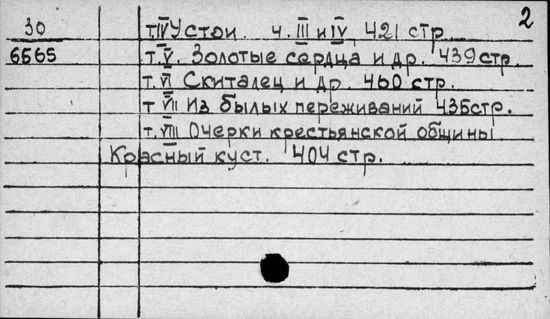 2
30 т. IV Устои ч. III и IV, 421 стр
6565 т. V. Золотые сердца и др. 439 стр.
т. VI Скиталец и др. 460 стр.
т VII Из былых переживаний 435 стр.
т. VIII Очерки крестьянской общины
Красный куст. 404 стр.